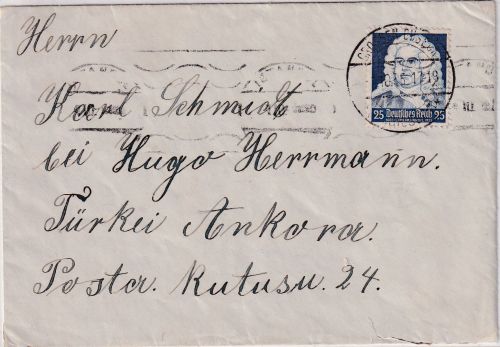 Herrn
Karl Schmidt
bei Hugo Herrmann.
Türkei Ankora.
Posta. Kutusu. 24.
25 Deutsches Reich 25